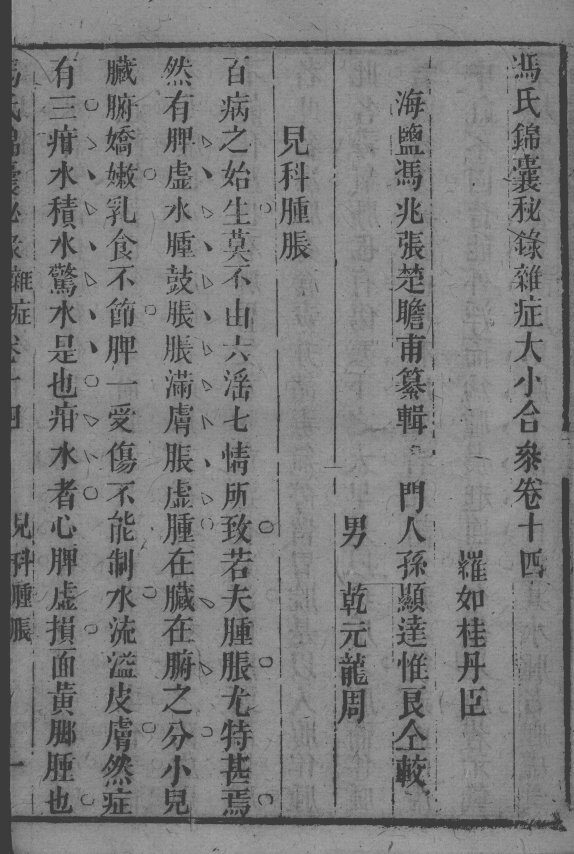 馮氏錦囊秘錄雜症大小合參卷十四
羅如桂丹臣
海鹽馮兆張楚瞻甫纂輯 門人孫顯達惟艮仝較
男 乾元龍周
兒科腫脹
百病之始生莫不由六滛七情所致若夫腫脹尤特甚焉
然有脾虛水腫鼓脹脹滿膚脹虛腫在臟在腑之分小兒
臟腑嬌嫩乳食不節脾一受傷不能制水流溢皮膚然症
有三疳水積水驚水是也疳水者心脾虛損面黃腳腫也
馮氏錦囊秘錄雜症卷十四 兒科腫脹 一